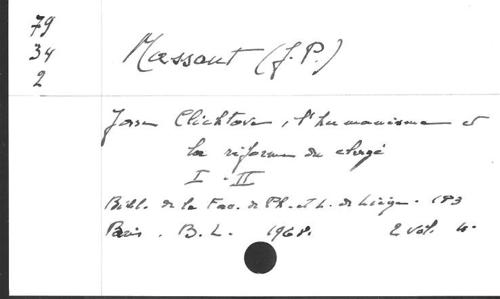 79
34
2
Massaut (J.P.)
Josse Clichtove, l'humanisme et
la réforme du clergé
I - II
Bibl. de la Fac. de Ph. et L. de Liège - 183
Paris. B.L. 1968. 2 vol. in-